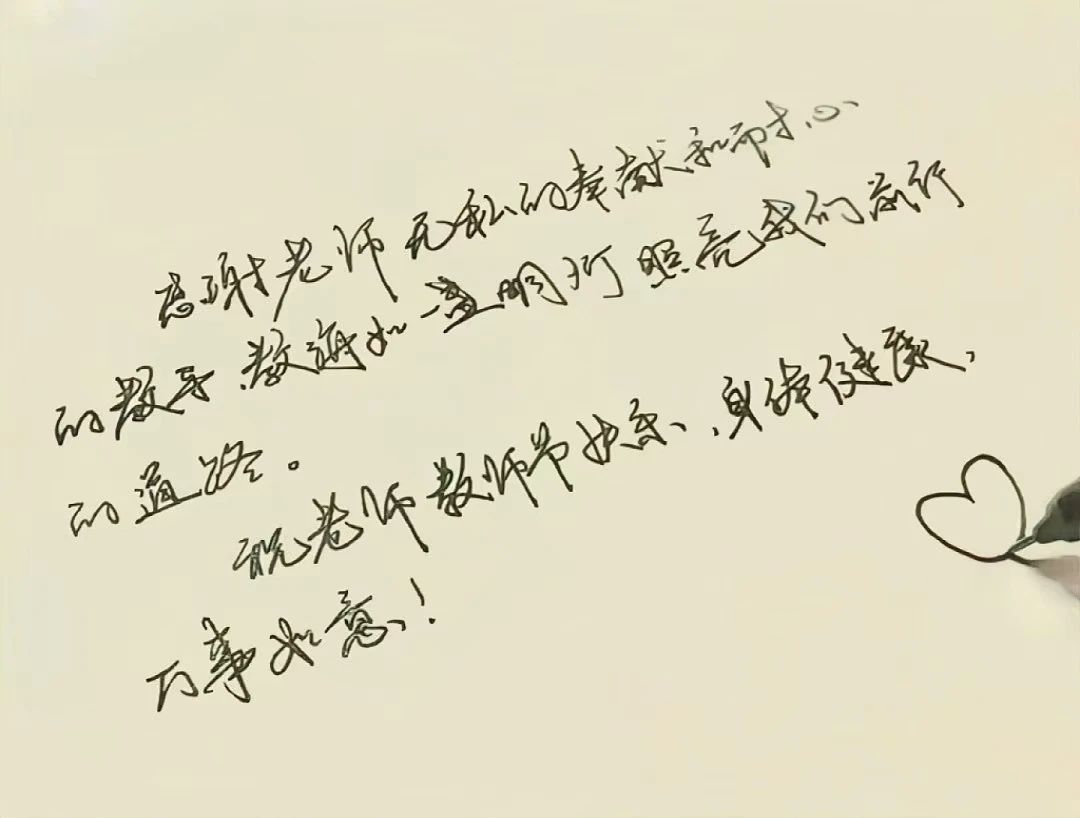 感谢老师无私的奉献和耐心
的教导,教诲如一盏明灯照亮我们前行
的道路。
祝老师教师节快乐,身体健康,
万事如意!